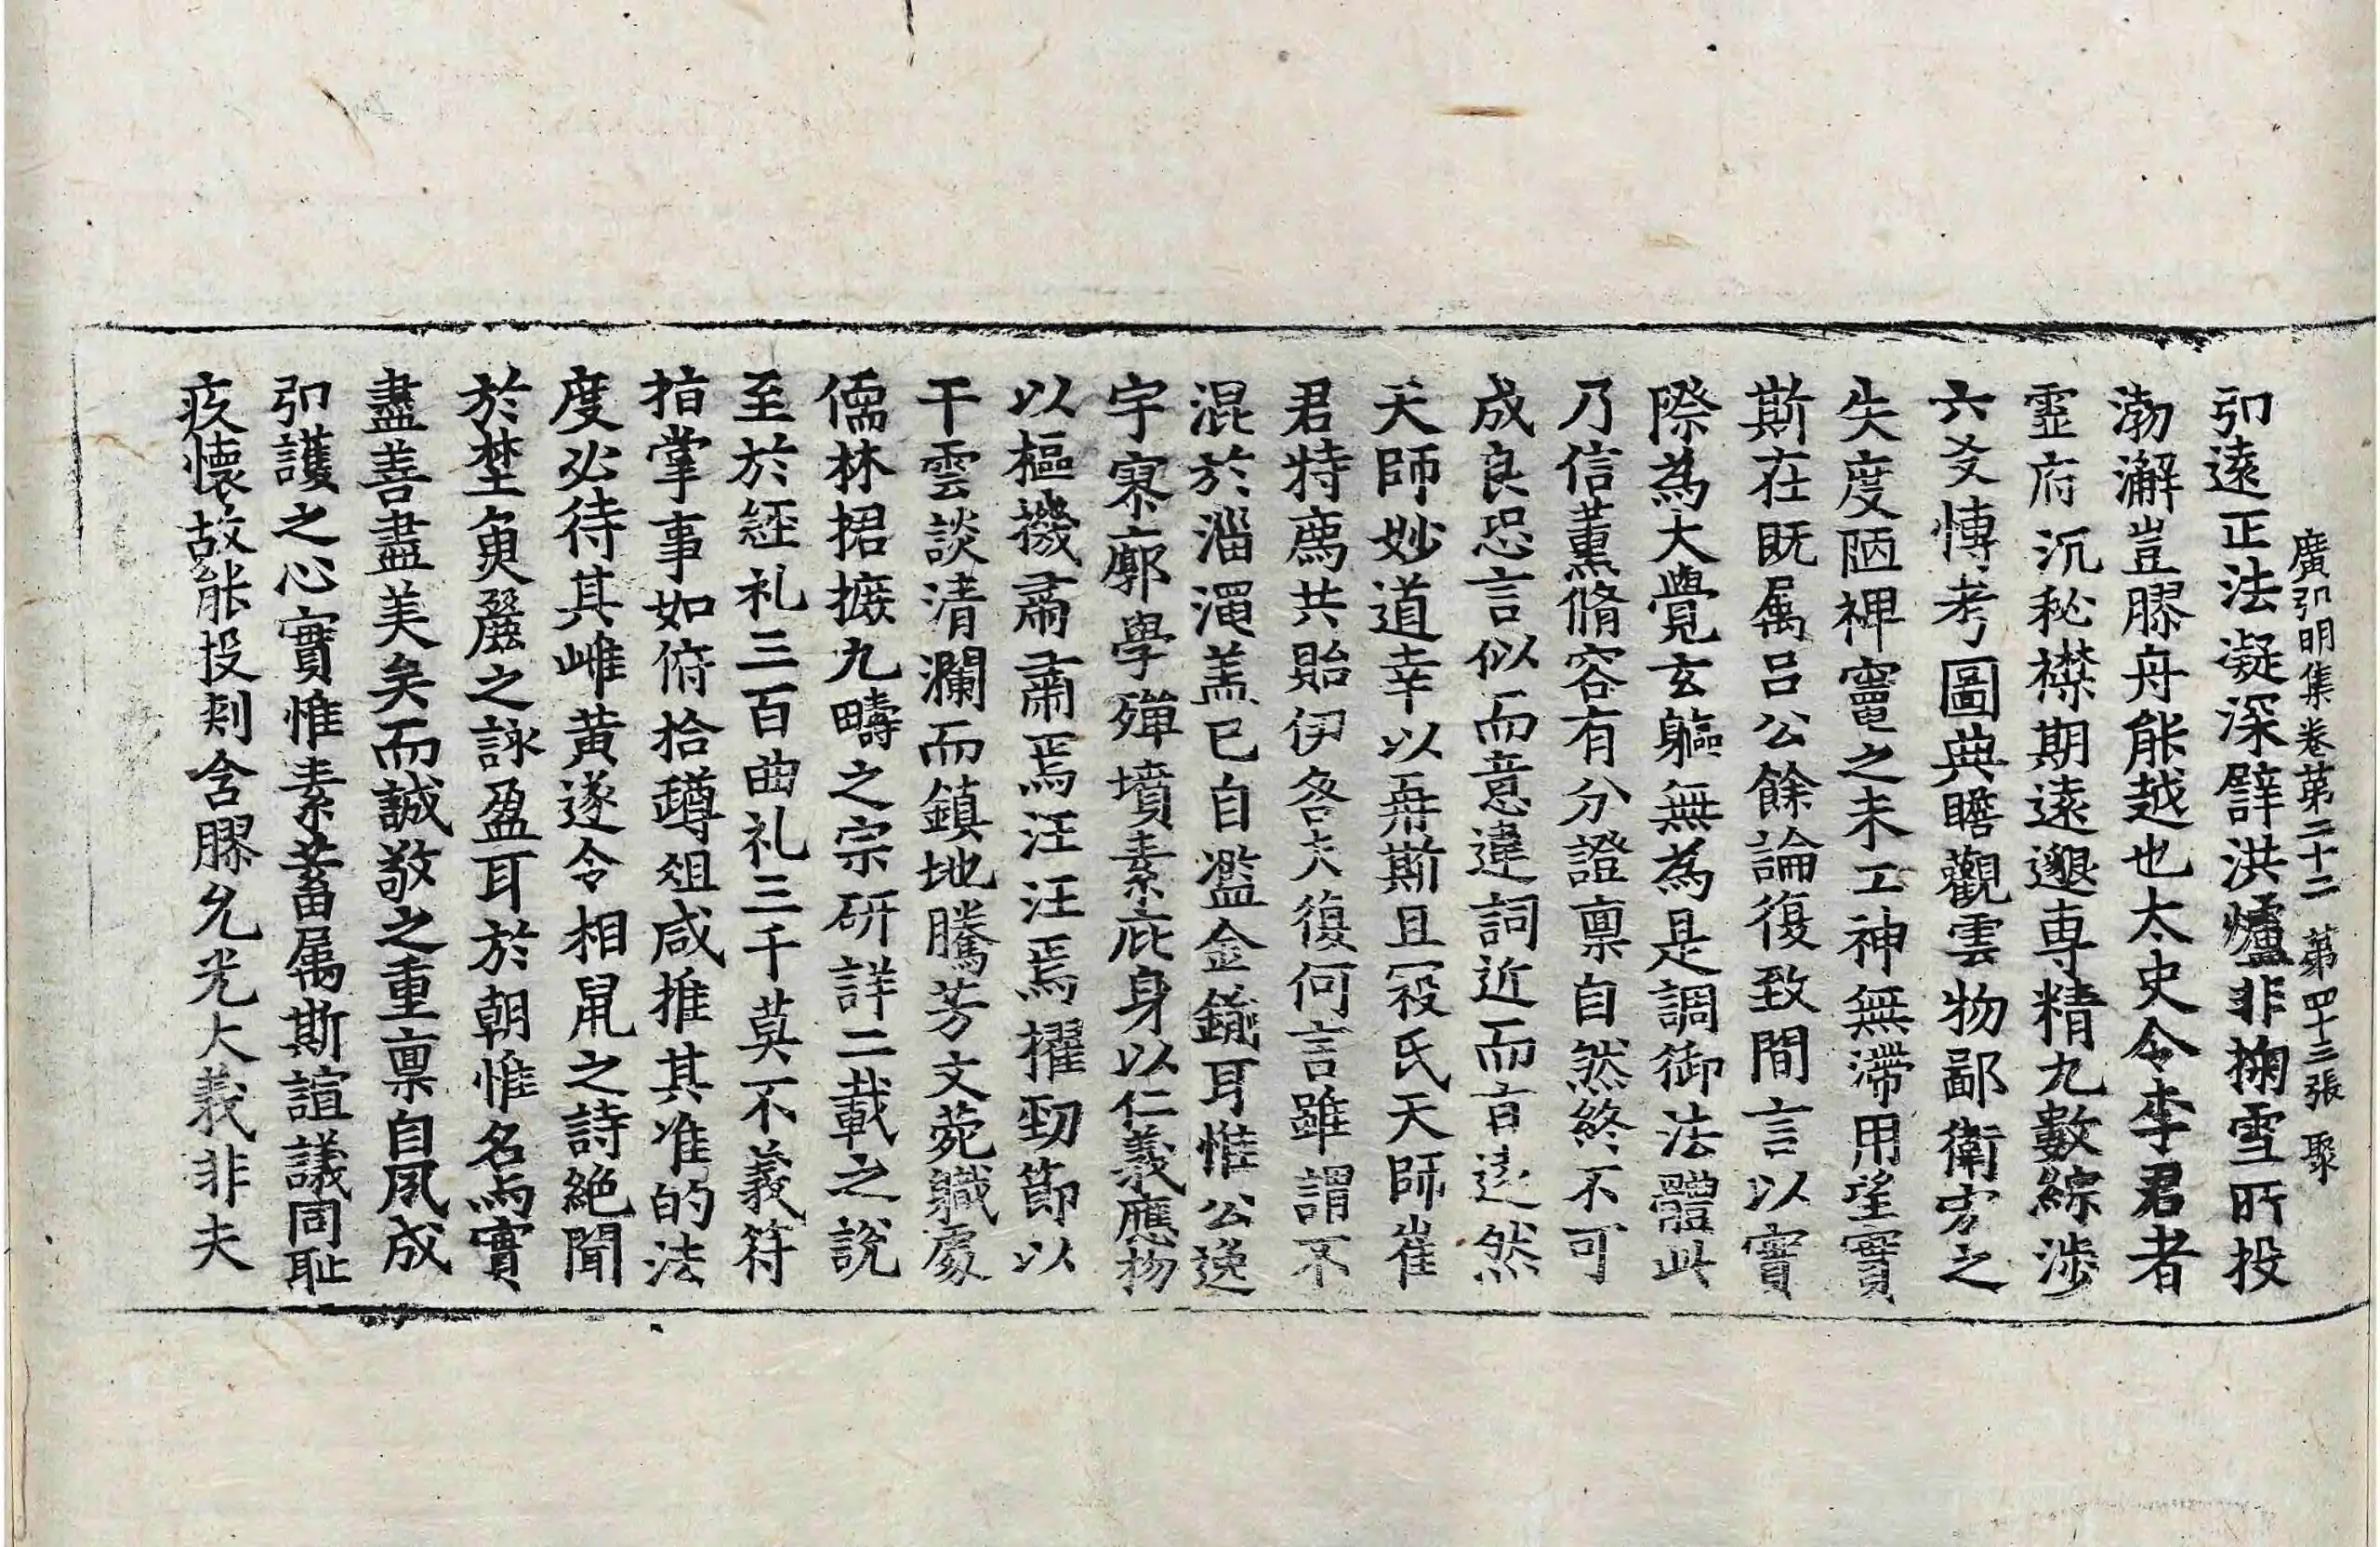 廣弘明集卷第二十二 第四十三張 聚
弘遠正法凝深辟洪爐非掬雪所投
渤澥豈膠舟能越也太史令李君者
靈府沉秘襟期遠邈專精九數綜涉
六爻博考圖典瞻觀雲物鄙衛宏之
失度陋裨竈之未工神無滯用望實
斯在既属呂公餘論復致間言以實
際為大覺玄軀無為是調御法體此
乃信薰脩容有分證稟自然終不可
成良恐言似而意違詞近而言遠然
天師妙道幸以再斯且寇氏天師崔
君特薦共貽伊咎夫復何言雖謂不
混於淄澠盖已自濫金鍮耳惟公逸
宇寥廓學殫墳素庇身以仁義應物
以樞機肅肅焉汪汪焉擢勁節以
干雲談清瀾而鎮地騰芳文苑職處
儒林捃摭九疇之宗研詳二載之說
至於經礼三百曲礼三千莫不義符
指掌事如俯拾蹲俎咸推其准的法
度必待其雌黄遂令相鼠之詩絕聞
於埜魚麗之詠盈耳於朝惟名與實
盡善盡美矣而誠敬之重稟自夙成
弘護之心實惟素蓄属斯誼議同耻
疚懷故能投刾含膠允光大義非夫